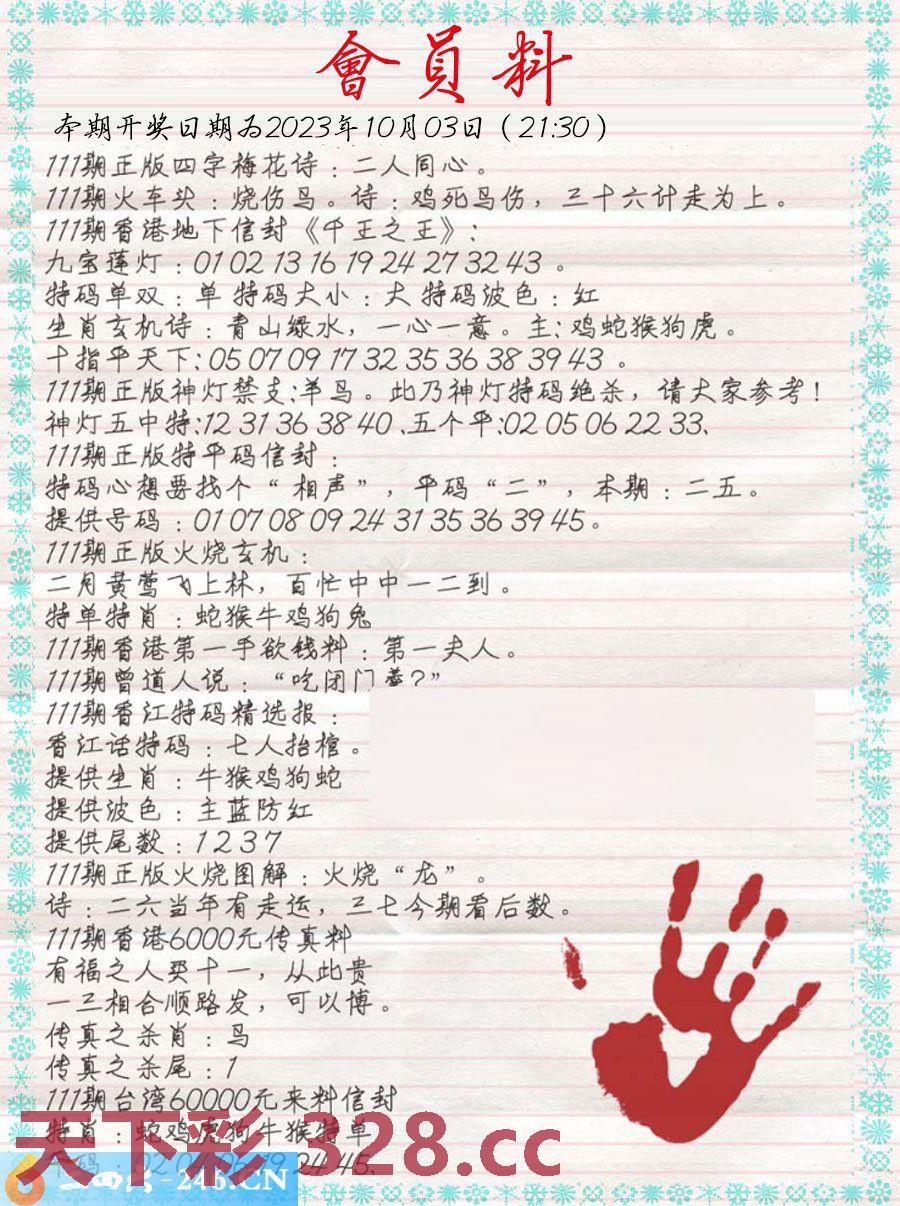 會員料
本期开奖日期为2023年10月03日（21:30）
111期正版四字梅花诗：二人同心。
111期火车头：烧伤马。诗：鸡死马伤，三十六计走为上。
111期香港地下信封《千王之王》：
九宝莲灯：01 02 13 16 19 24 27 32 43 。
特码单双：单 特码大小：大 特码波色：红
生肖玄机诗：青山绿水，一心一意。主：鸡蛇猴狗虎。
十指平天下：05 07 09 17 32 35 36 38 39 43 。
111期正版神灯禁支：羊马。此乃神灯特码绝杀，请大家参考！
神灯五中特：12 31 36 38 40 、五个平：02 05 06 22 33、
111期正版特平码信封：
特码心想要找个“相声”，平码“二”，本期：二五。
提供号码：01 07 08 09 24 31 35 36 39 45。
111期正版火烧玄机：
二月黄莺飞上林，百忙中中一二到。
特单特肖：蛇猴牛鸡狗兔
111期香港第一手欲钱料：第一夫人。
111期曾道人说：“吃闭门羹？”
111期香江特码精选报：
香江话特码：七人抬棺。
提供生肖：牛猴鸡狗蛇
提供波色：主蓝防红
提供尾数：1 2 3 7
111期正版火烧图解：火烧“龙”。
诗：二六当年有走运，三七今期看后数。
111期香港6000元传真料
有福之人买十一，从此贵
一三相合顺路发，可以博。
传真之杀肖：马
传真之杀尾：1
111期台湾60000元来料信封
特肖：蛇鸡虎狗牛猴特单
天下彩 328.cc
24 45、
246.CN